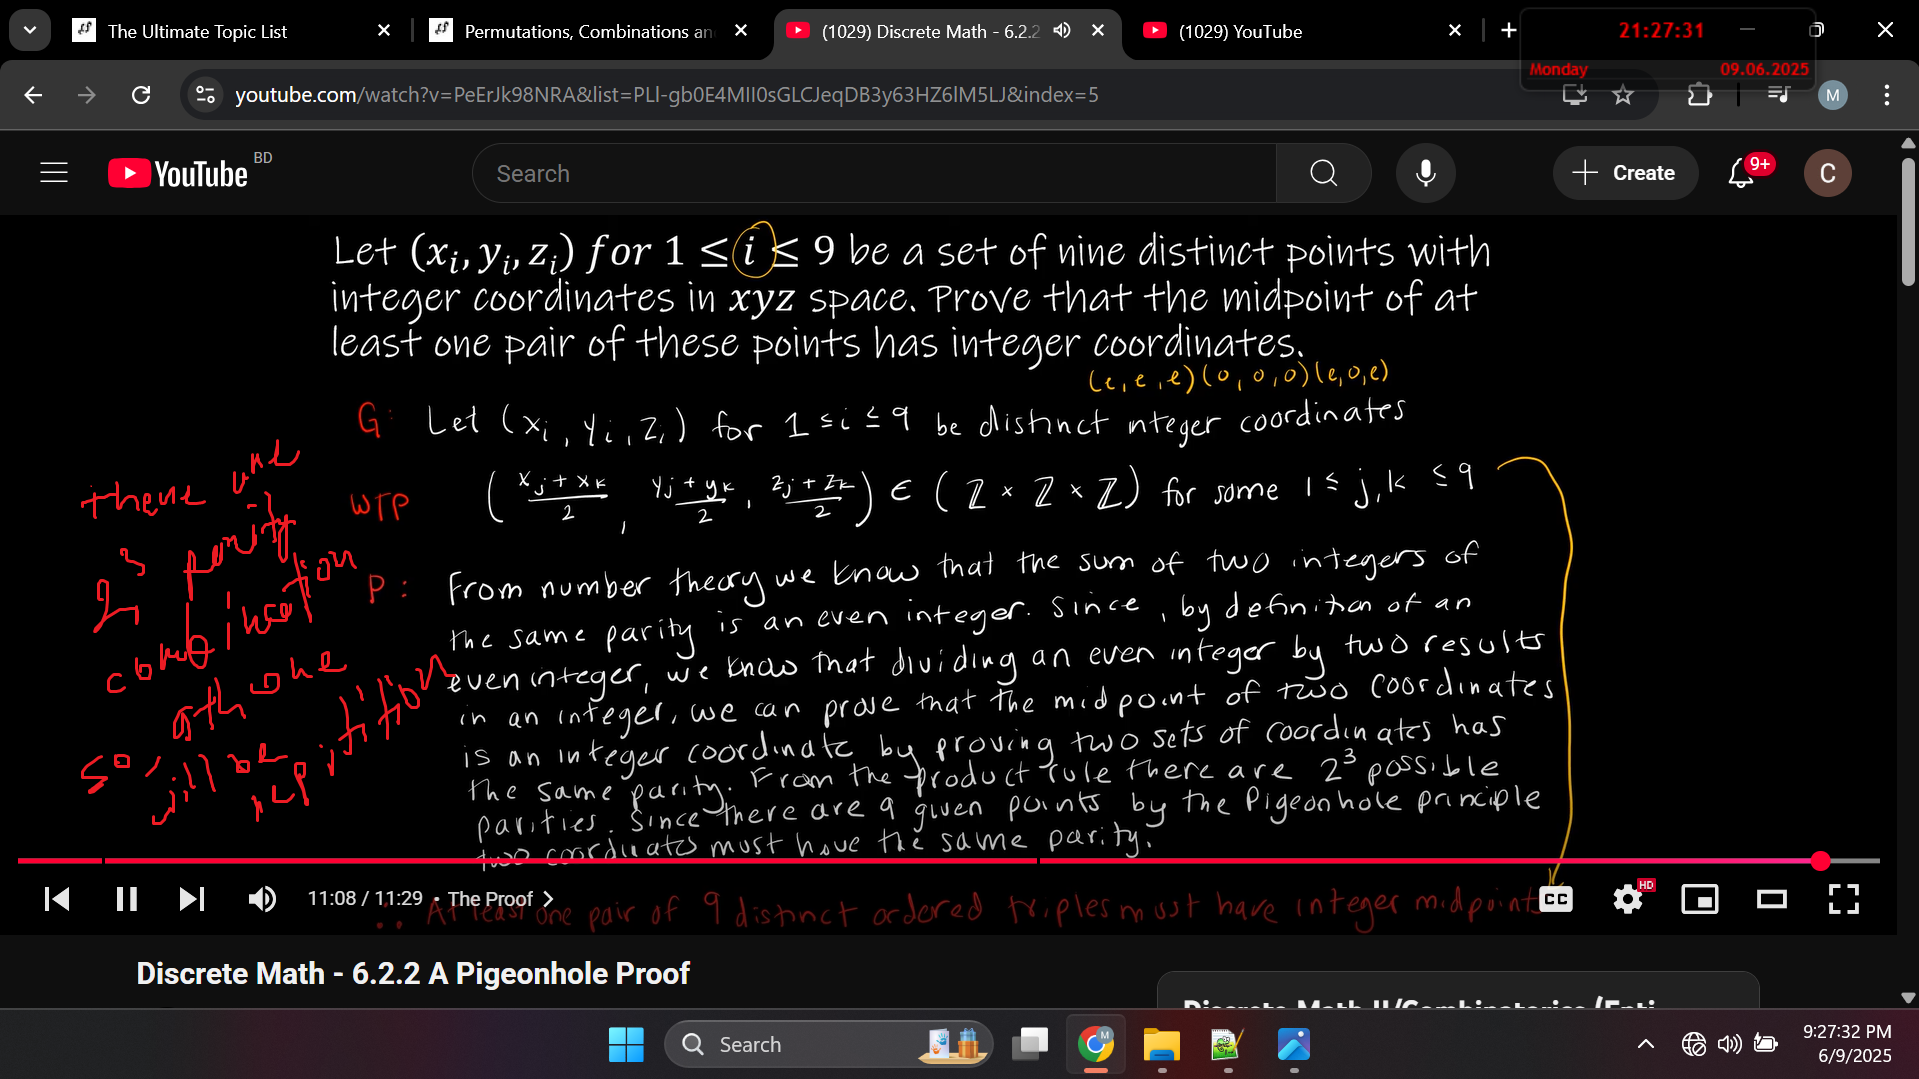 The Ultimate Topic List
Permutations, Combinations an
(1029) Discrete Math - 6.2.2
(1029) YouTube
21:27:31
Monday 09.06.2025
youtube.com/watch?v=PeErJk98NRA&list=PLl-gb0E4MII0sGLCJeqDB3y63HZ6lM5LJ&index=5
M
YouTube BD
Search
Create
9+
C
Let (xᵢ, yᵢ, zᵢ) for 1 ≤ i ≤ 9 be a set of nine distinct points with
integer coordinates in xyz space. Prove that the midpoint of at
least one pair of these points has integer coordinates.
(e, e, e) (o, o, o) (e, o, e)
G: Let (xᵢ, yᵢ, zᵢ) for 1 ≤ i ≤ 9 be distinct integer coordinates
WTP ( xⱼ + xₖ / 2 , yⱼ + yₖ / 2 , zⱼ + zₖ / 2 ) ∈ ( ℤ × ℤ × ℤ ) for some 1 ≤ j, k ≤ 9
P: From number theory we know that the sum of two integers of
the same parity is an even integer. Since, by definition of an
even integer, we know that dividing an even integer by two results
in an integer, we can prove that the midpoint of two coordinates
is an integer coordinate by proving two sets of coordinates has
the same parity. From the product rule there are 2³ possible
parities. Since there are 9 given points by the Pigeonhole principle
two coordinates must have the same parity.
∴ At least one pair of 9 distinct ordered triples must have integer midpoint
there are
2³ parity
combination
so, 9th one
will be repitition
11:08 / 11:29 • The Proof
CC
HD
Discrete Math - 6.2.2 A Pigeonhole Proof
Discrete Math II/Combinatorics (Enti
Search
M
9:27:32 PM
6/9/2025